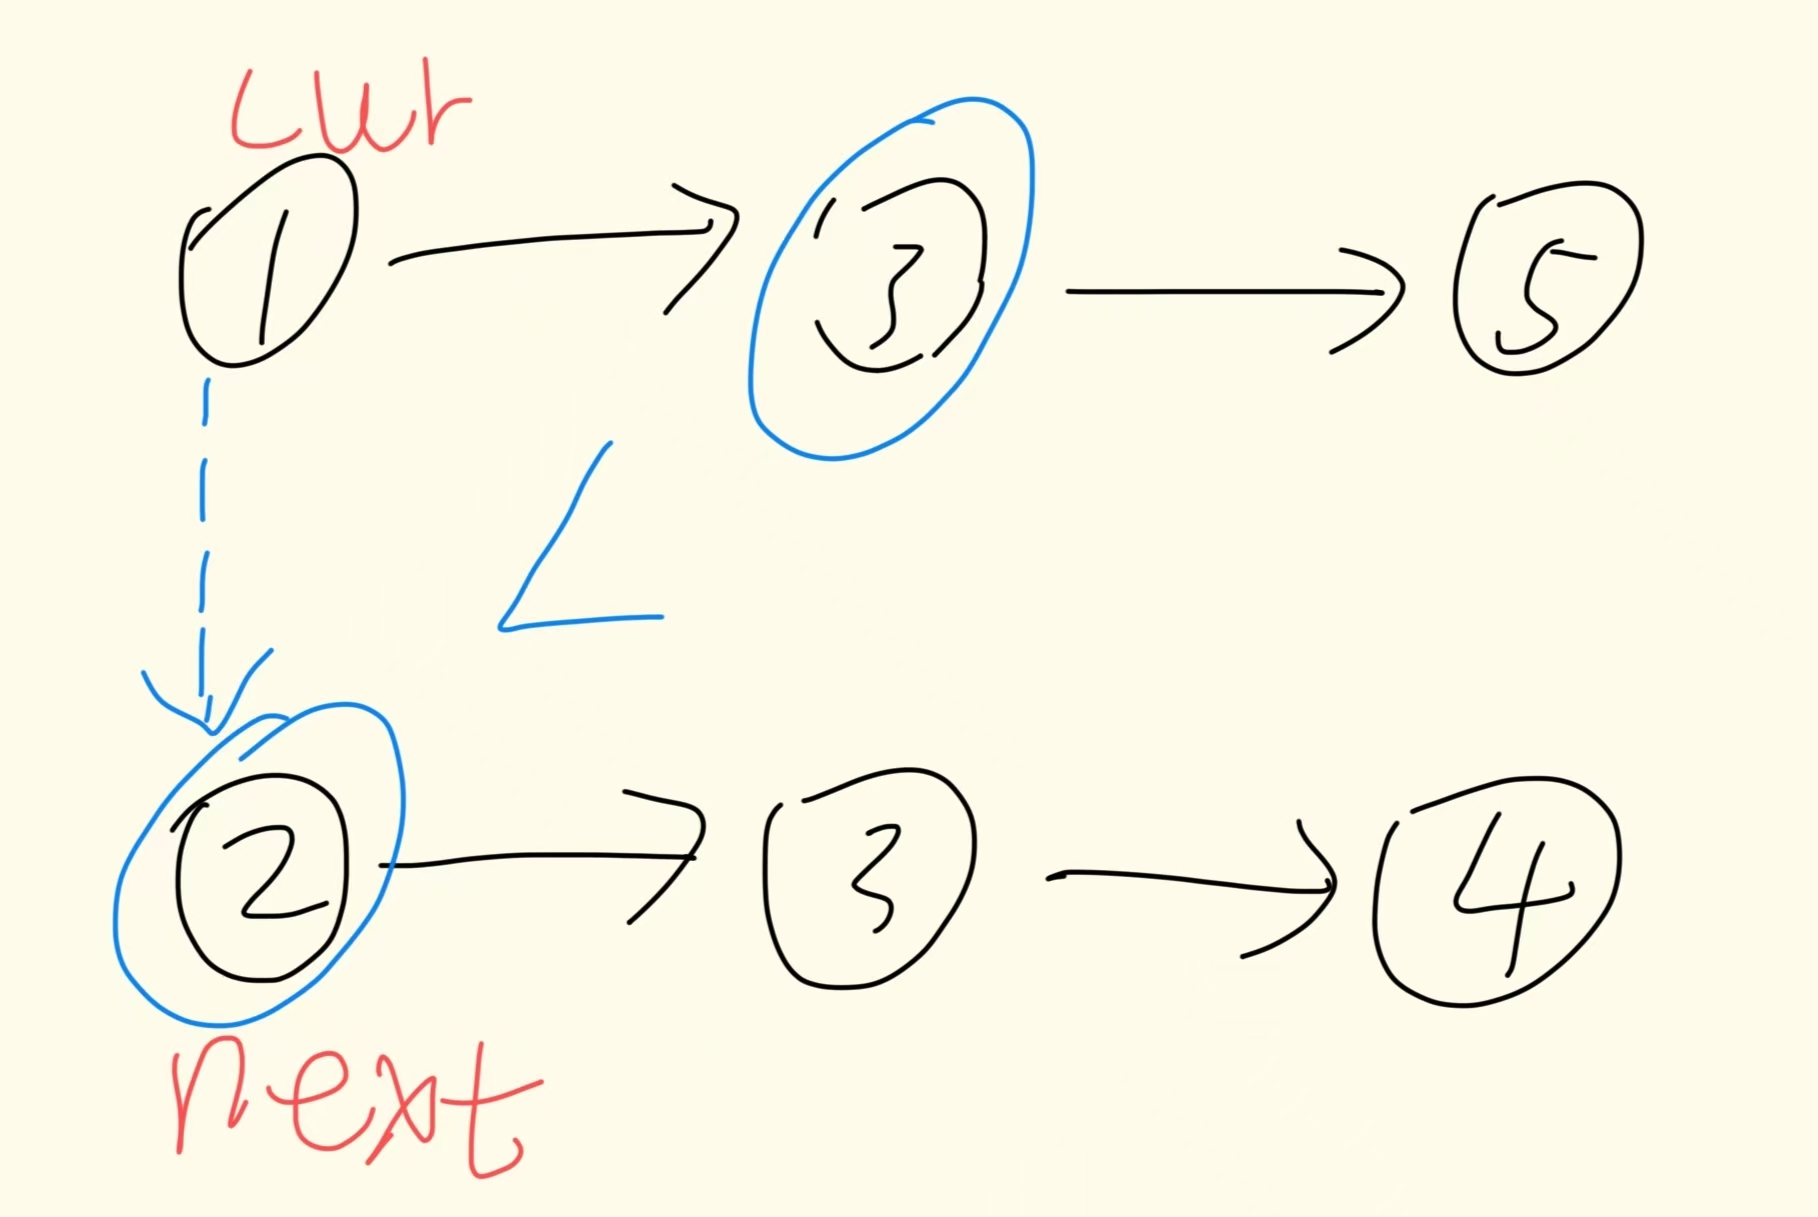 cur
1 3 5
2 3 4
next